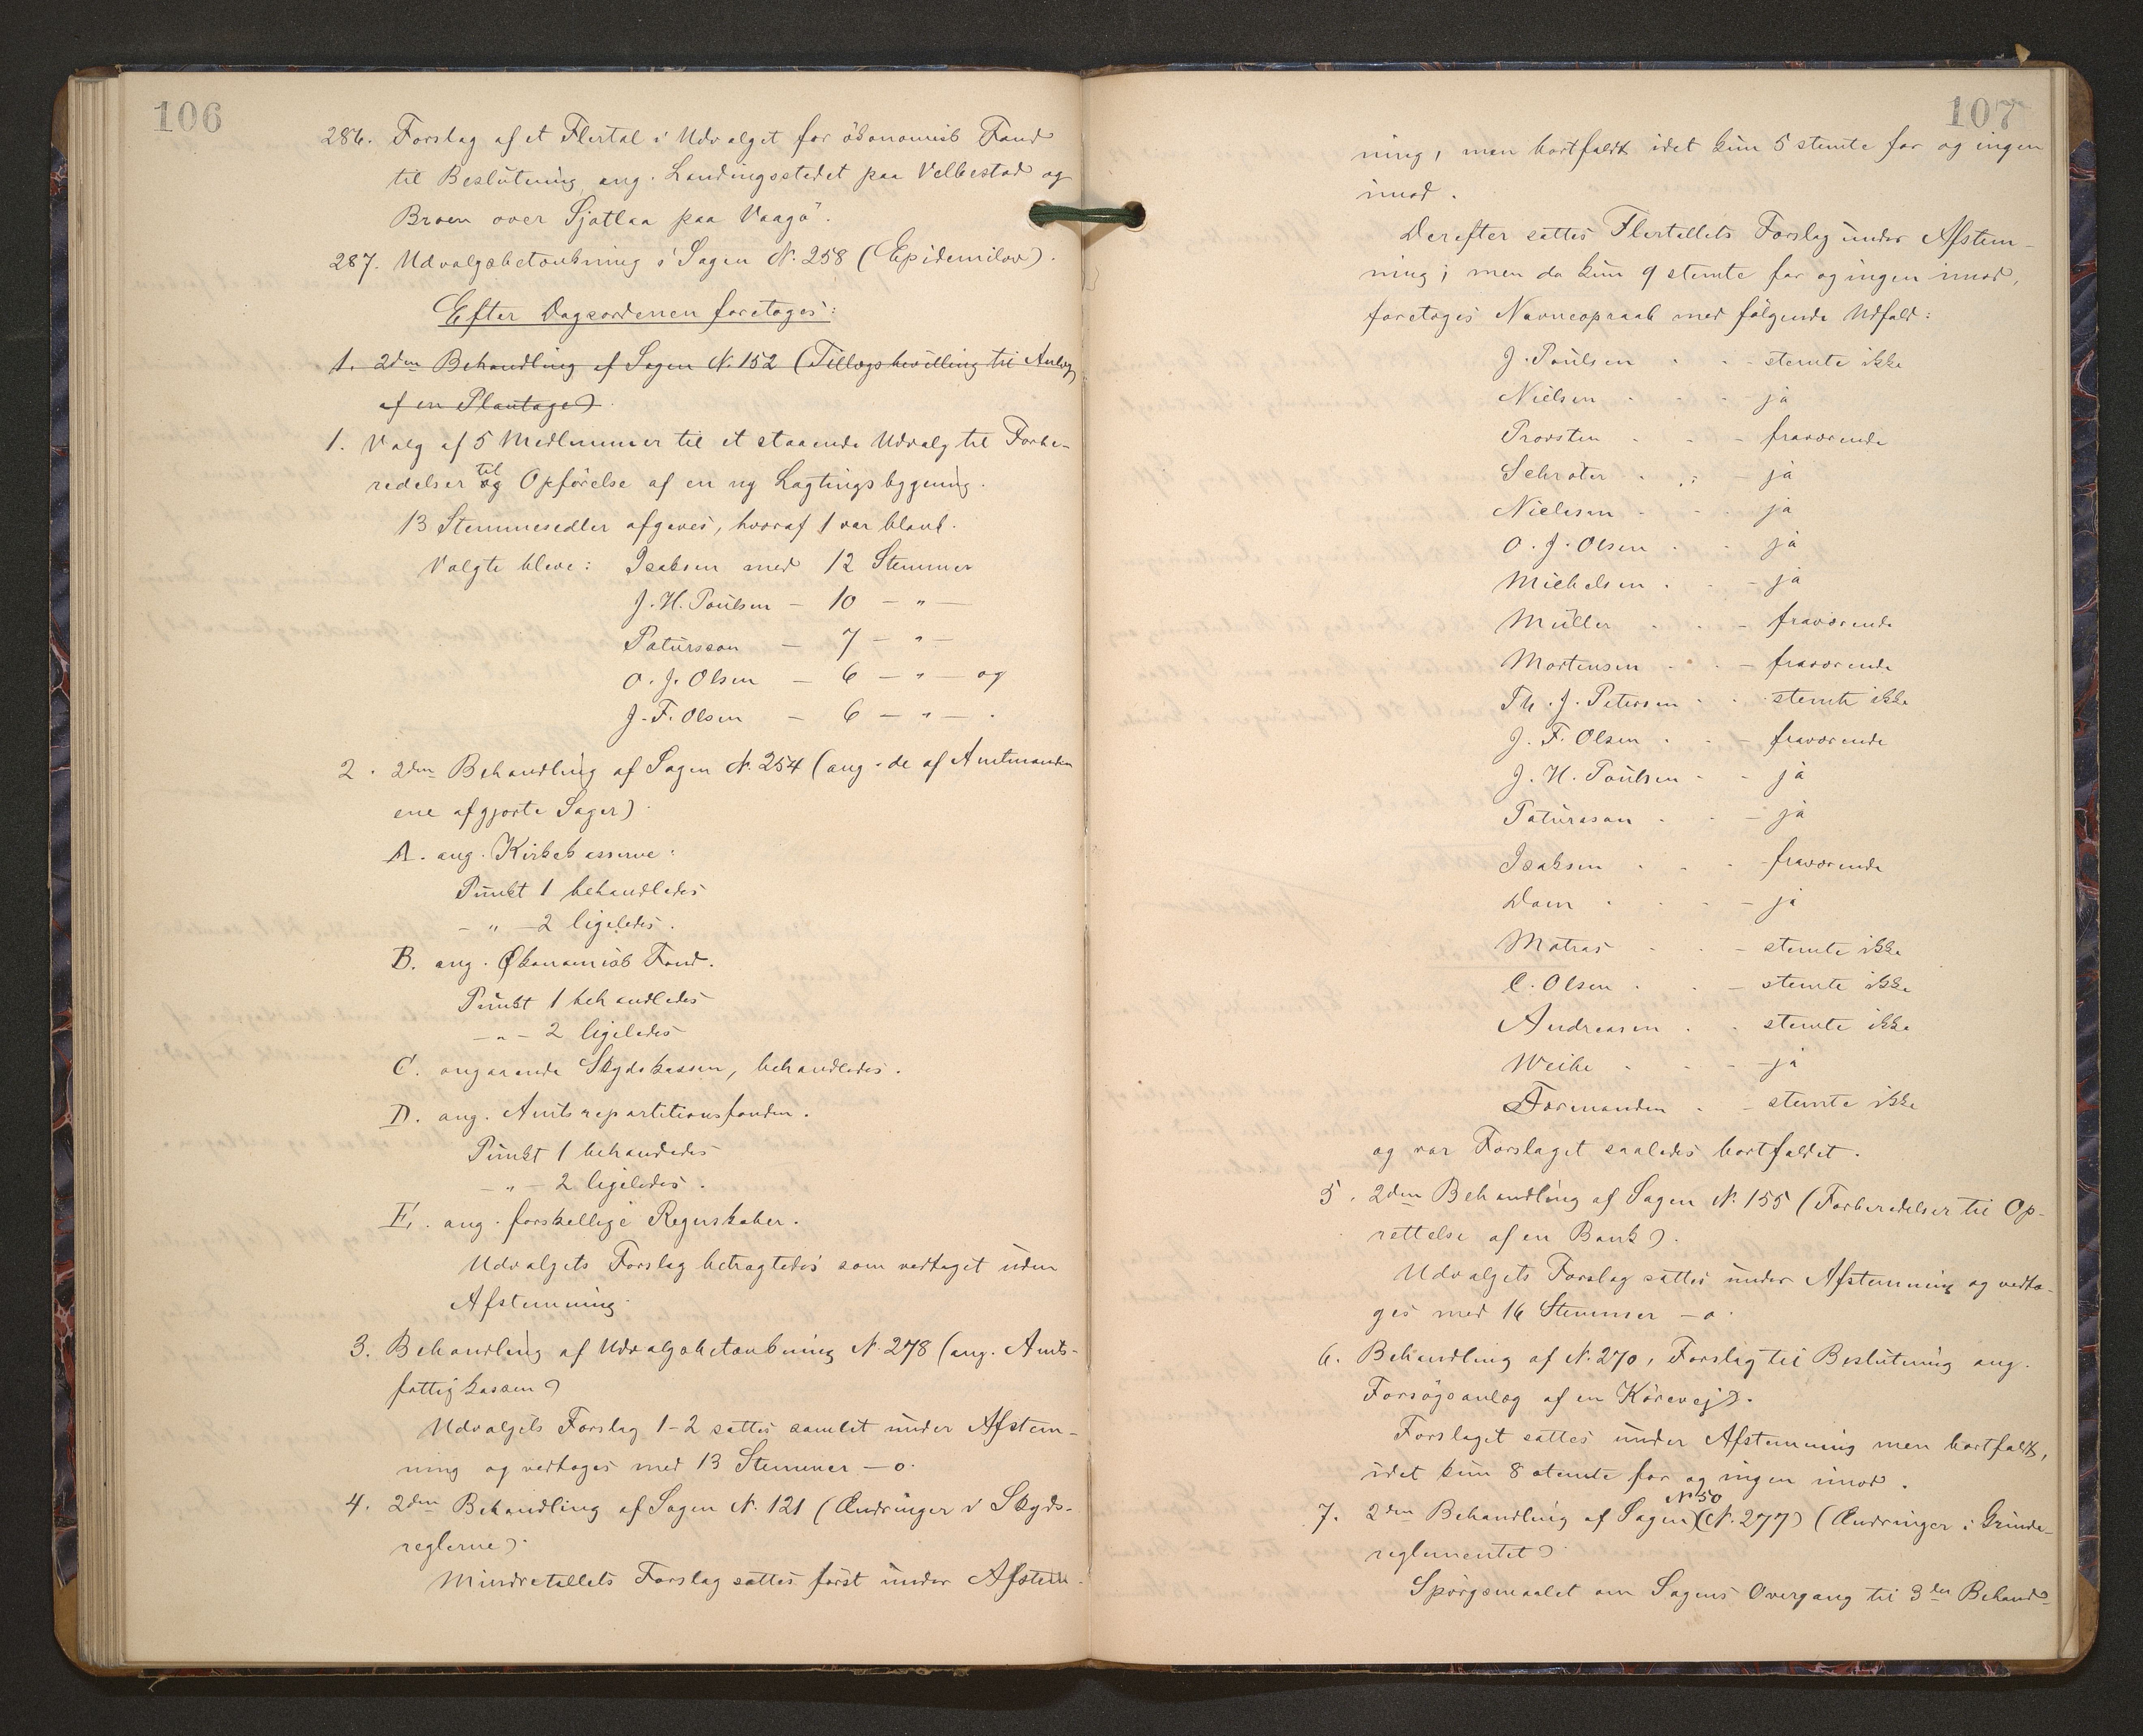 106
286. Forslag af et Flertal i Udvalget for økonomisk Fond
til Beslutning ang. Landingsstedet paa Velbestad og
Broen over Sjatlaa paa Vaagø.
287. Udvalgsbetænkning i Sagen N. 258 (Epidemilov).
Efter Dagsordenen foretoges:
1. 2den Behandling af Sagen N. 152 (Tillægsbevilling til Anlæg
af en Plantage)
1. Valg af 5 Medlemmer til et staaende Udvalg til Forbe-
redelser og til Opførelse af en ny Lagtingsbygning.
13 Stemmesedler afgaves, hvoraf 1 var blank.
Valgte bleve: Isaksen med 12 Stemmer
J. H. Poulsen – 10 – " –
Patursson – 7 – " –
O. J. Olsen – 6 – " – og
J. F. Olsen – 6 – " – .
2. 2den Behandling af Sagen N. 254 (ang. de af Amtmanden
ene afgjorte Sager).
A. ang. Kirkekasserne:
Punkt 1 behandledes
– " – 2 ligeledes.
B. ang. Økonomisk Fond.
Punkt 1 behandledes
– " – 2 ligeledes
C. angaaende Skydskassen, behandledes.
D. ang. Amtsrepartitionsfonden.
Punkt 1 behandedes
– " – 2 ligeledes.
E. ang. forskellige Regnskaber.
Udvalgets Forslag betragtedes som vedtaget uden
Afstemning.
3. Behandling af Udvalgsbetænkning N. 278 (ang. Amts-
fattigkassen)
Udvalgets Forslag 1-2 sattes samlet under Afstem-
ning og vedtoges med 13 Stemmer – o.
4. 2den Behandling af Sagen N. 121 (Ændringer i Skyds-
reglerne).
Mindretallets Forslag sattes først under Afstem-
107
ning, men bortfaldt idet kun 5 stemte for og ingen
imod.
Derefter sattes Flertallets Forslag under Afstem-
ning; men da kun 9 stemte for og ingen imod,
foretoges Navneopraab med følgende Udfald:
J. Poulsen - - stemte ikke
Nielsen - - - ja
Provsten - - - fraværende
Schrøter - - - ja
Nielsen - - - ja
O. J. Olsen - - ja
Michelsen - - - ja
Müller - - - fraværende
Mortensen - - - fraværende
Th. J. Petersen - - stemte ikke
J. F. Olsen - - - fraværende
J. H. Poulsen - - ja
Patursson - - - ja
Isaksen - - - fraværende
Dam - - - - ja
Matras - - - stemte ikke
C. Olsen - - - stemte ikke
Andreasen - - stemte ikke
Weihe - - - - ja
Formanden - - stemte ikke
og var Forslaget saaledes bortfaldet.
5. 2den Behandling af Sagen N. 155 (Forberedelser til Op-
rettelse af en Bank).
Udvalgets Forslag sattes under Afstemning og vedto-
ges med 16 Stemmer – o.
6. Behandling af N. 270, Forslag til Beslutning ang.
Forsøgsanlæg af en Kørevej).
Forslaget sattes under Afstemning men bortfaldt,
idet kun 8 stemte for og ingen imod.
7. 2den Behandling af Sagen N. 50 (N. 277) (Ændringer i Grinde-
reglementet)
Spørgsmaalet om Sagens Overgang til 3die Behand-